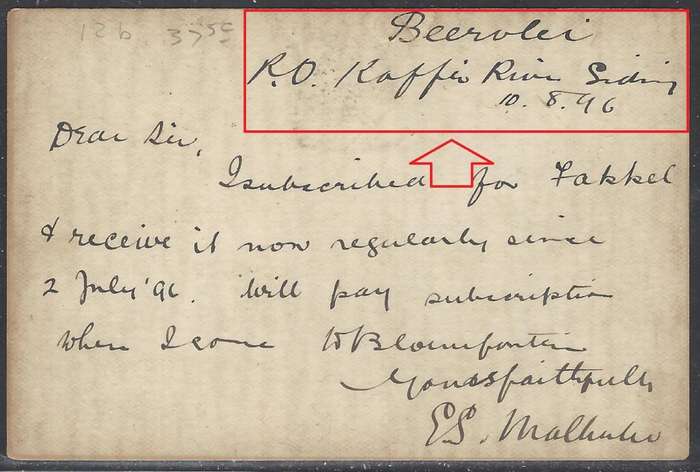 12b 37 5c
Beervlei
P.O. Kaffir River Siding
10. 8. 96
Dear Sir,
I subscribed for Fakkel
& receive it now regularly since
2 July '96. Will pay subscription
when I come to Bloemfontein
Yours faithfully